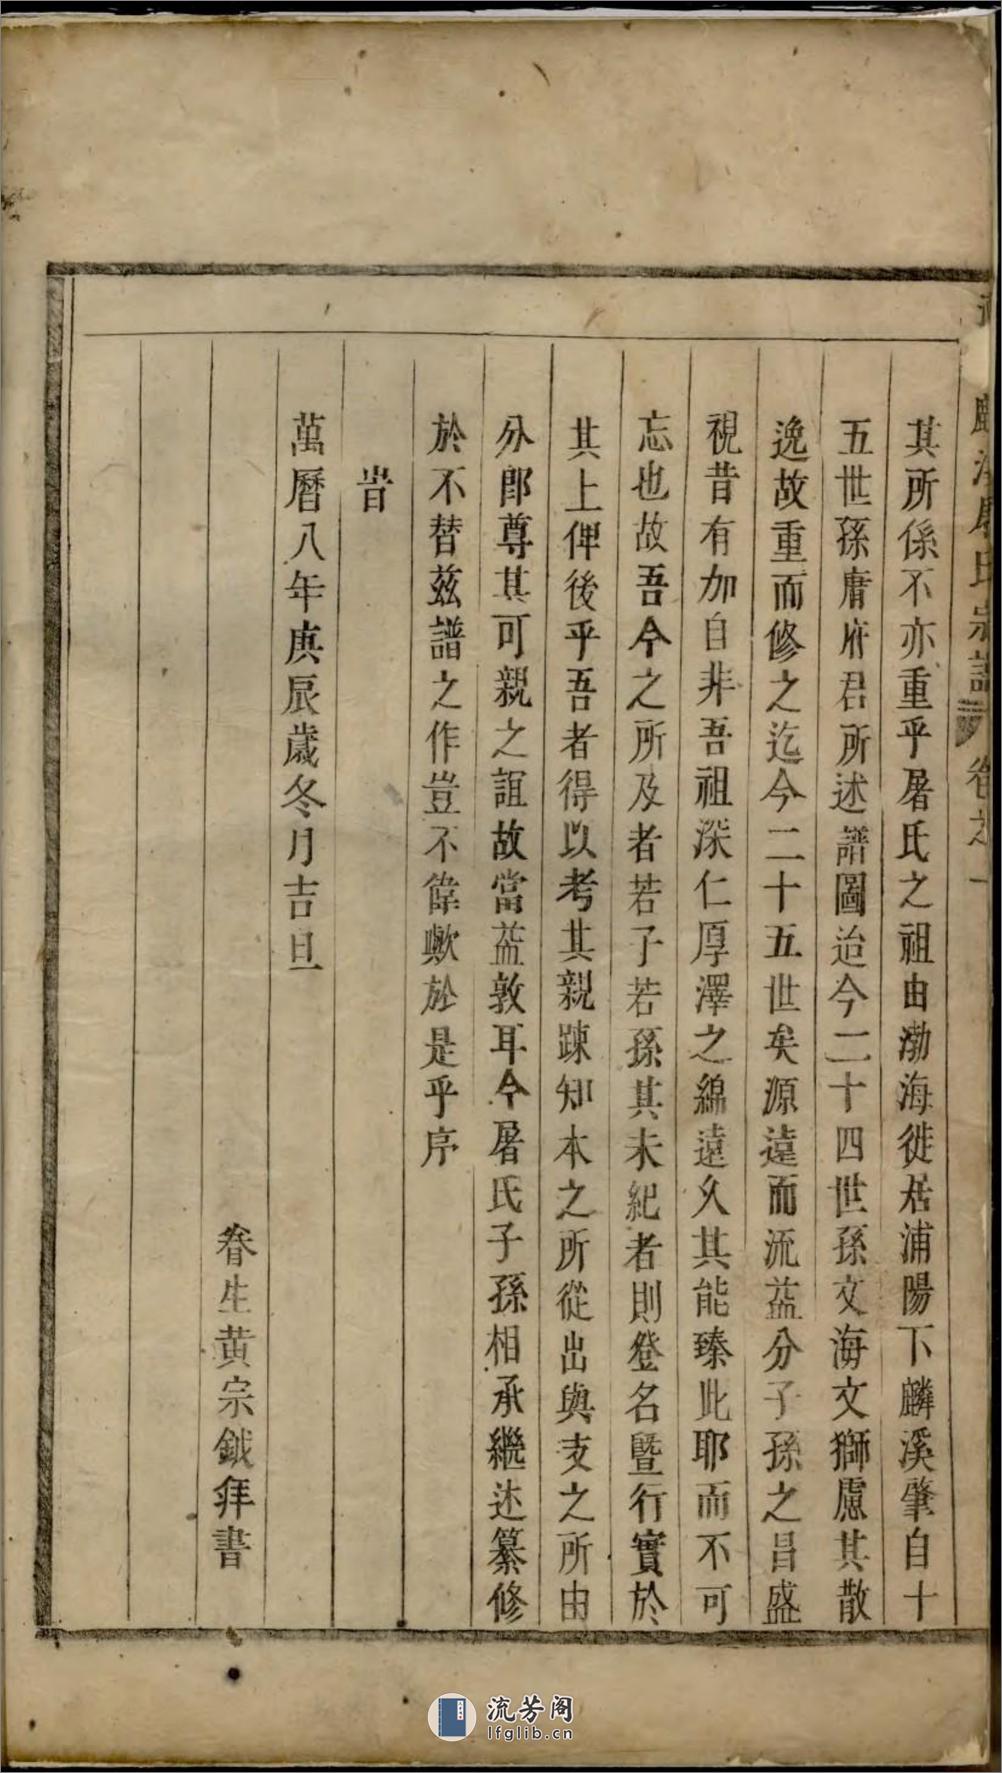 麟溪屠氏宗譜 卷之一
其所係不亦重乎屠氏之祖由渤海徙居浦陽下麟溪肇自十
五世孫庸府君所述譜圖迨今二十四世孫文海文獅慮其散
逸故重而修之迄今二十五世矣源遠而流益分子孫之昌盛
視昔有加自非吾祖深仁厚澤之綿遠久其能臻此耶而不可
忘也故吾今之所及者若子若孫其未紀者則登名暨行實於
其上俾後乎吾者得以考其親踈知本之所從出與支之所由
分郎尊其可親之誼故當益敦耳今屠氏子孫相承繼述纂修
於不替兹譜之作豈不偉歟於是乎序
旹
萬曆八年庚辰歲冬月吉旦
眷生黄宗鉞拜書
流芳阁
lfglib.cn